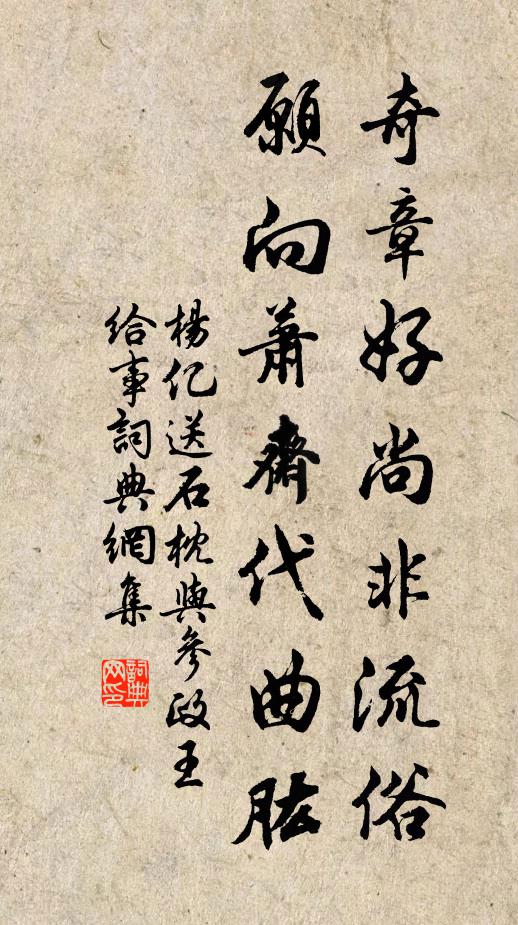 奇章好尚非流俗
願向蕭齋代曲肱
楊億送石枕與參政王
給事詞典網集
詞典
网印